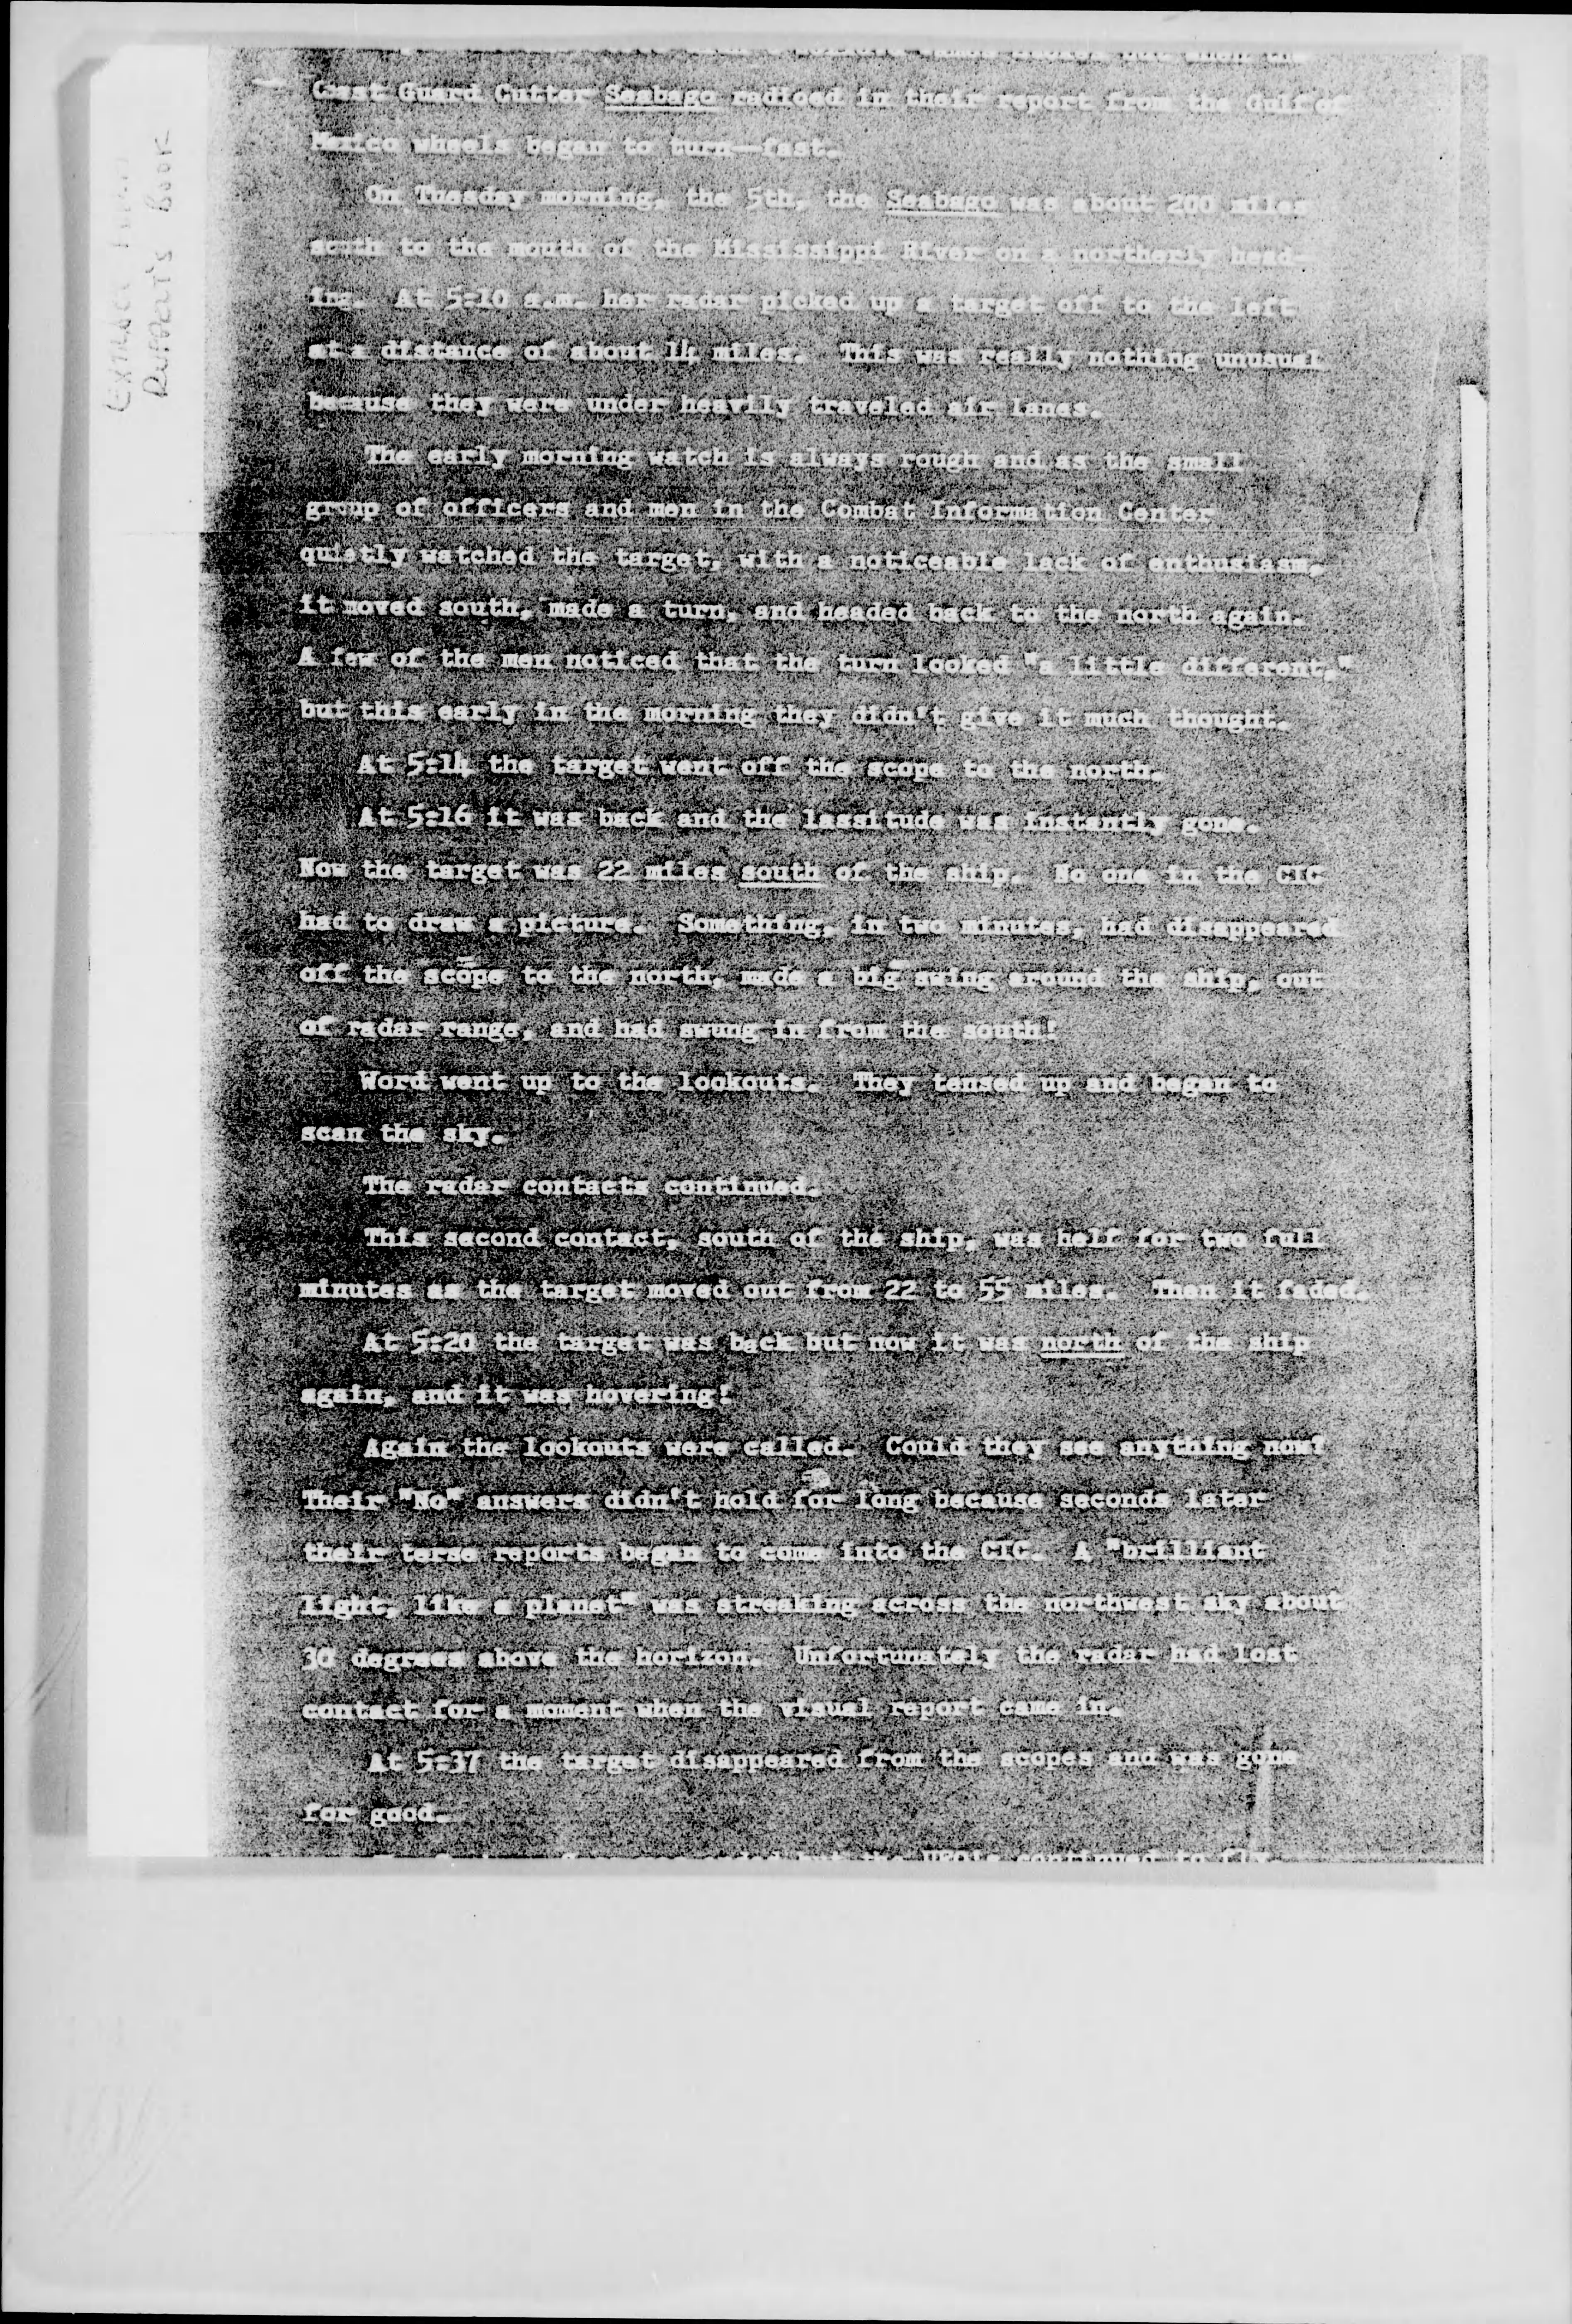 Coast Guard Cutter Seabago radioed in their report from the Gulf of
Mexico wheels began to turn—fast.
On Tuesday morning, the 5th, the Seabago was about 200 miles
south to the mouth of the Mississippi River on a northerly head-
ing. At 5:10 a.m. her radar picked up a target off to the left
at a distance of about 14 miles. This was really nothing unusual
because they were under heavily traveled air lanes.
The early morning watch is always rough and as the small
group of officers and men in the Combat Information Center
quietly watched the target, with a noticeable lack of enthusiasm,
it moved south, made a turn, and headed back to the north again.
A few of the men noticed that the turn looked "a little different,"
but this early in the morning they didn't give it much thought.
At 5:14 the target went off the scope to the north.
At 5:16 it was back and the lassitude was instantly gone.
Now the target was 22 miles south of the ship. No one in the CIC
had to draw a picture. Something, in two minutes, had disappeared
off the scope to the north, made a big swing around the ship, out
of radar range, and had swung in from the south!
Word went up to the lookouts. They tensed up and began to
scan the sky.
The radar contacts continued.
This second contact, south of the ship, was helf for two full
minutes as the target moved out from 22 to 55 miles. Then it faded.
At 5:20 the target was back but now it was north of the ship
again, and it was hovering!
Again the lookouts were called. Could they see anything now?
Their "No" answers didn't hold for long because seconds later
their terse reports began to come into the CIC. A "brilliant
light, like a planet" was streaking across the northwest sky about
30 degrees above the horizon. Unfortunately the radar had lost
contact for a moment when the visual report came in.
At 5:37 the target disappeared from the scopes and was gone
for good.
but the UFO's continued to fly
Extract from
Ruppelt's Book